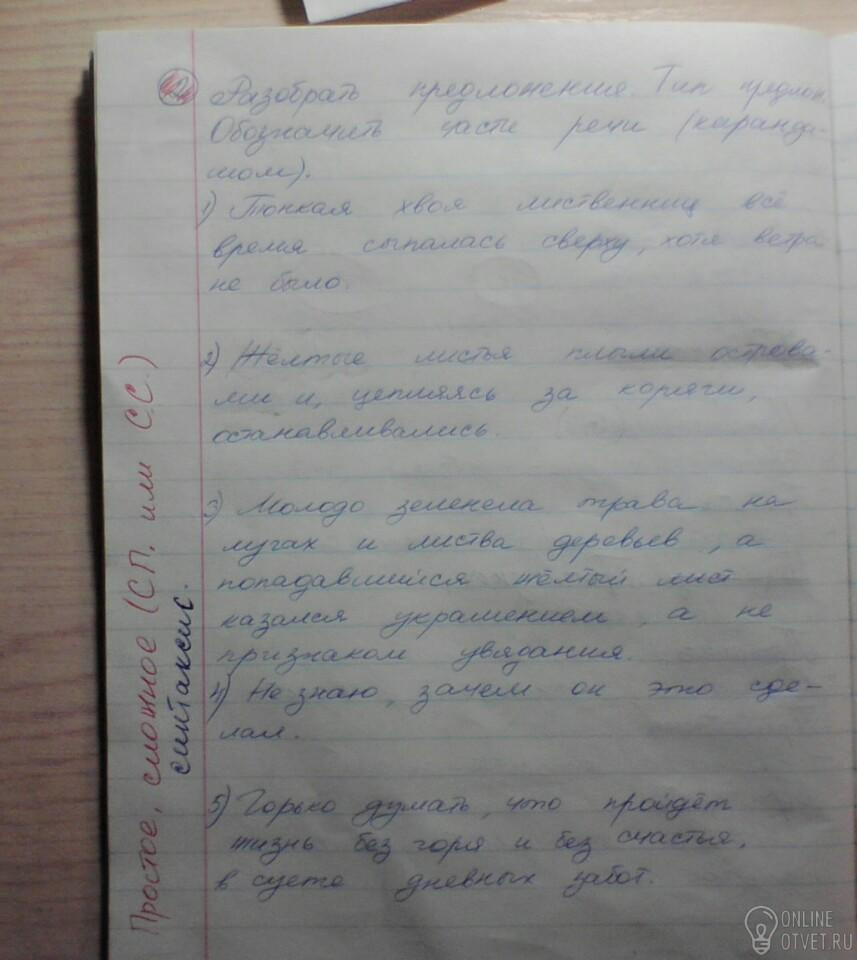 2
Разобрать предложения. Тип предлож.
Обозначить части речи (каранда-
шом).
1) Тонкая хвоя лиственниц всё
время сыпалась сверху, хотя ветра
не было.
2) Жёлтые листья плыли острова-
ми и, цепляясь за коряги,
останавливались.
3) Молодо зеленела трава на
лугах и листва деревьев, а
попадавшийся жёлтый лист
казался украшением, а не
признаком увядания.
4) Не знаю, зачем он это сде-
лал.
5) Горько думать, что пройдёт
жизнь без горя и без счастья,
в суете дневных забот.
Простое, сложное (СП. или СС.)
синтаксис.
ONLINE
OTVET.RU